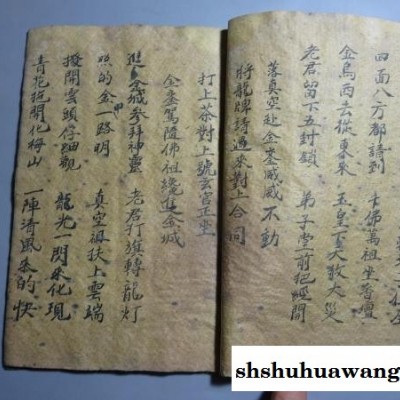 四面八方都請到 千佛萬祖坐香壇
金烏西去從東來 玉皇下大救大災
老君留下五封鎖 弟子堂前把經開
落真空赴金鑾威威不動
將龍牌請過來對上合同
打上茶對上號玄宮正坐
金鑾駕隨佛祖纔進金城
進金城參拜神靈 老君打旗轉龍灯
照的金一路明 真空祖扶上雲端
撥開雲頭仔細觀 龍光一閃來化現
青花抱開化梅山 一陣清風來的快
shshuhuawang